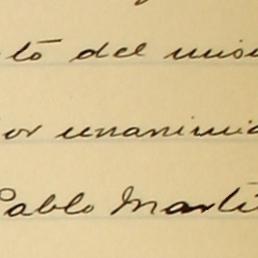 tó del mis
or unanimid
Pablo Martí